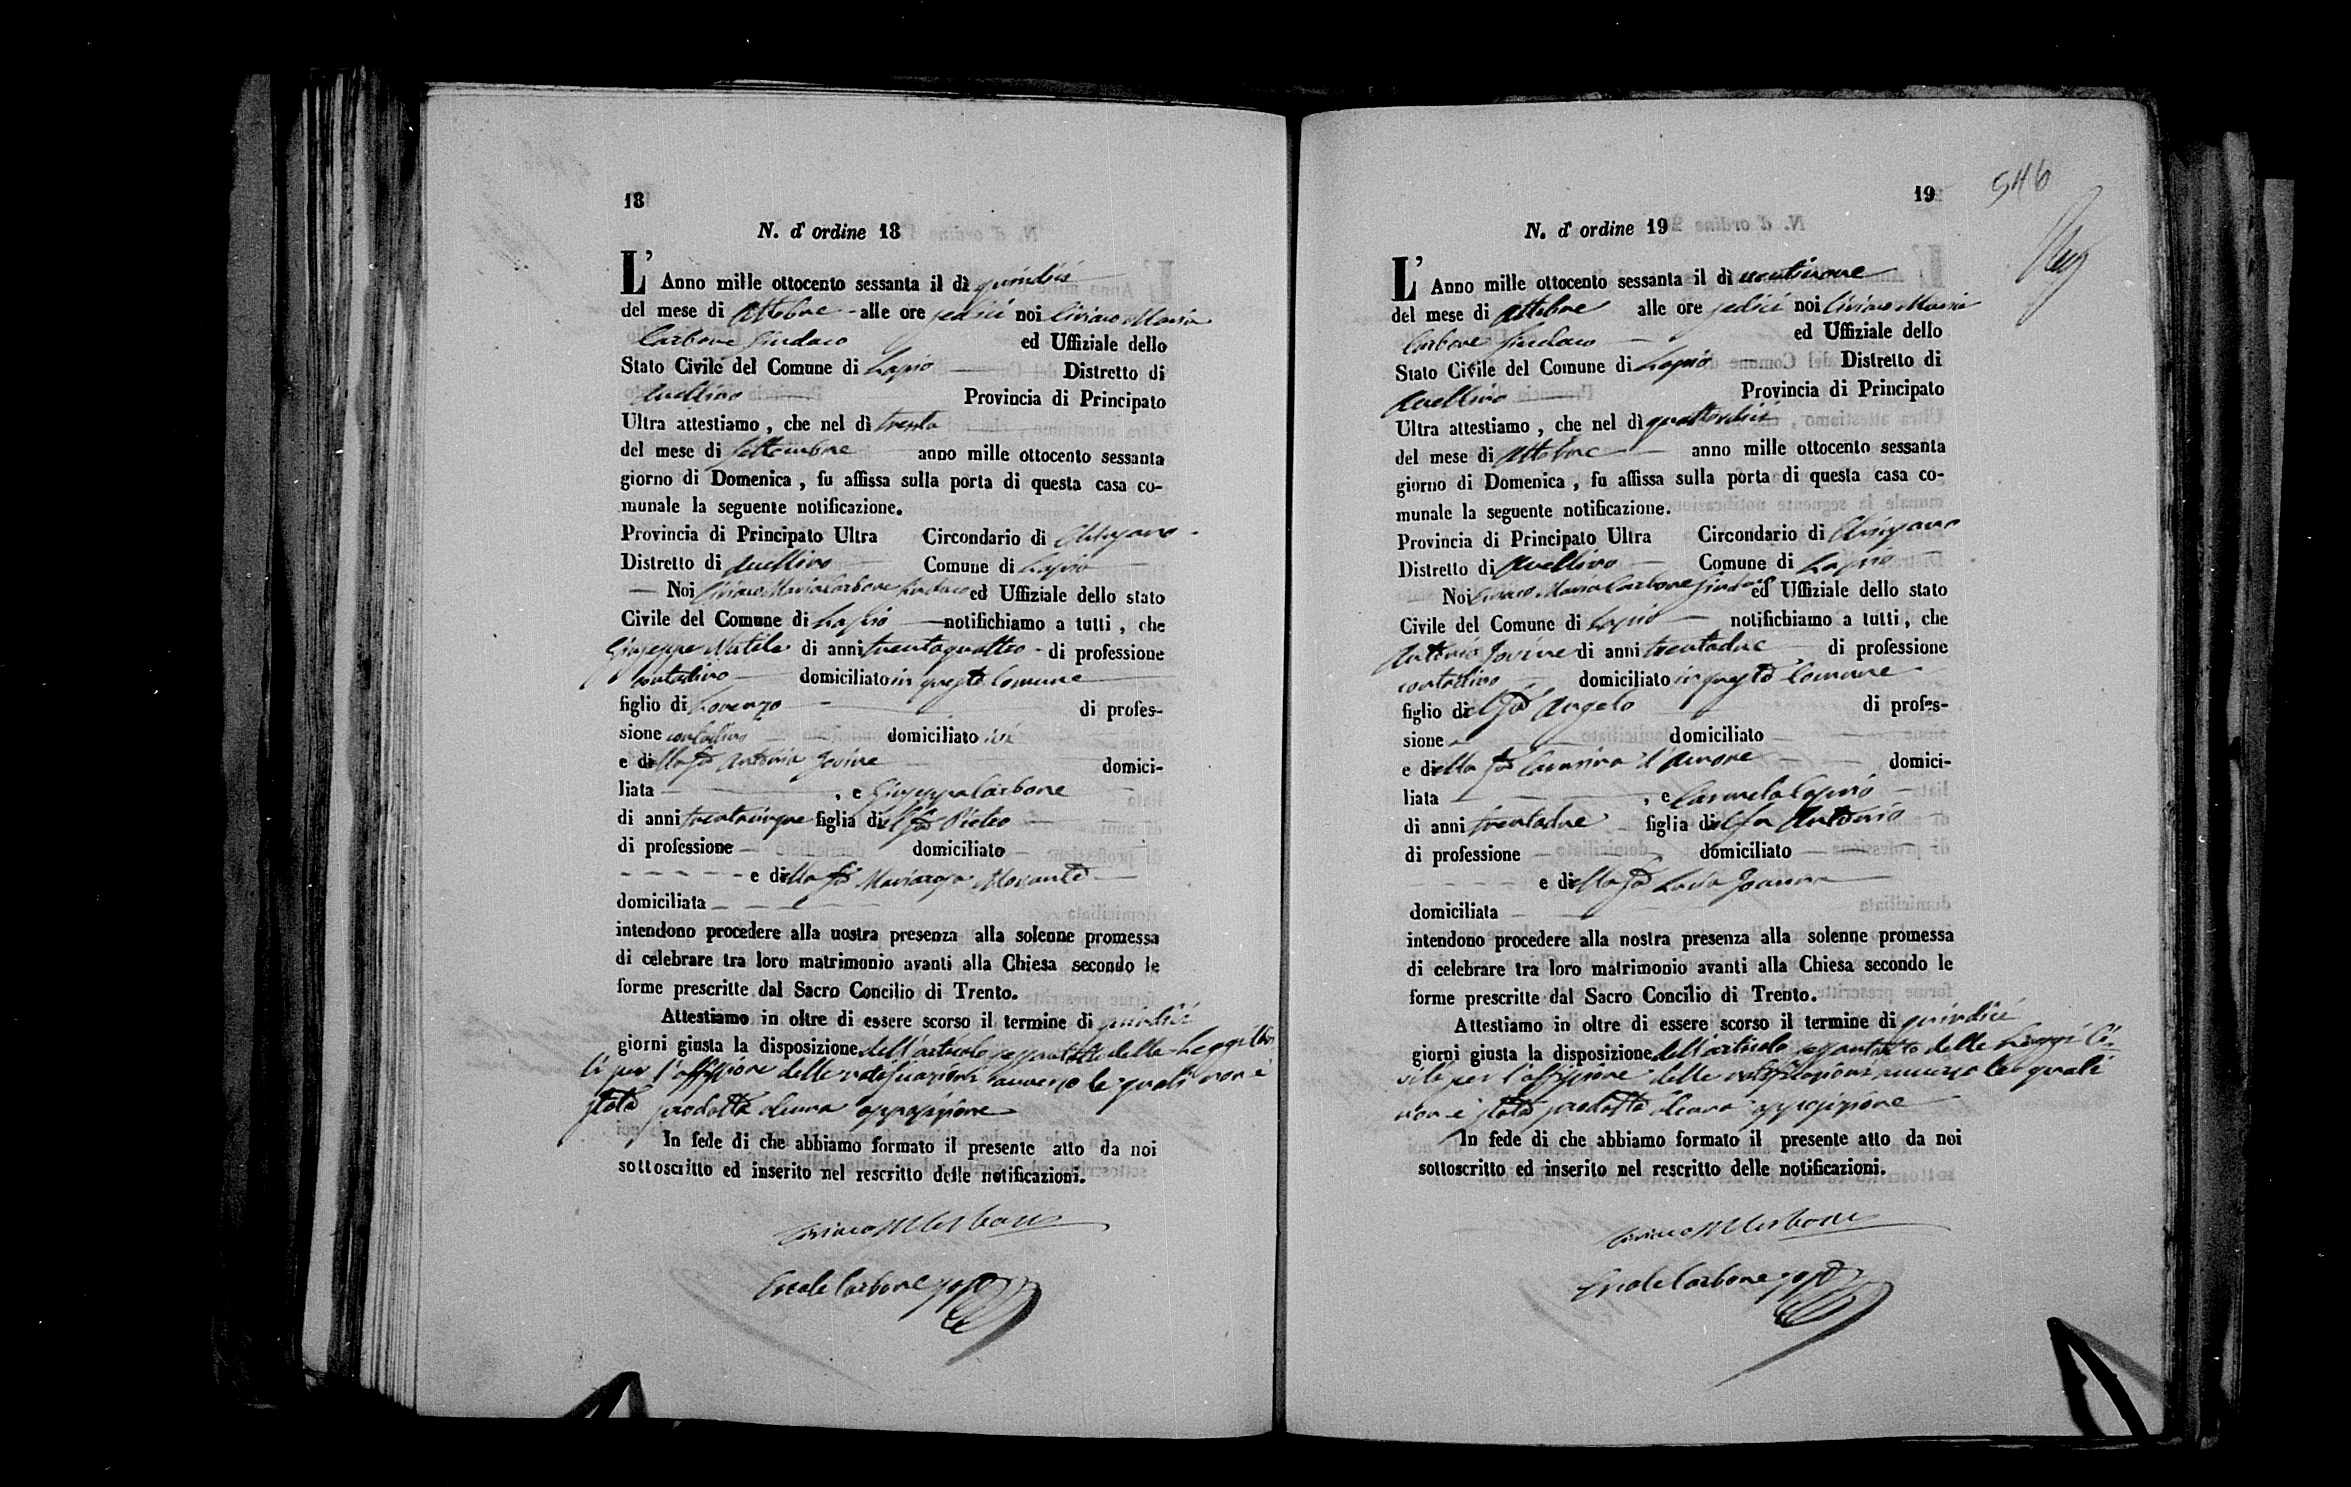 18
N. d' ordine 18
L' Anno mille ottocento sessanta il dì quindici
del mese di Ottobre - alle ore sedici noi Ciriaco Maria
Carbone Sindaco ed Uffiziale dello
Stato Civile del Comune di Lapio Distretto di
Avellino Provincia di Principato
Ultra attestiamo, che nel dì trenta
del mese di Settembre anno mille ottocento sessanta
giorno di Domenica, fu affissa sulla porta di questa casa co-
munale la seguente notificazione.
Provincia di Principato Ultra Circondario di Chiusano
Distretto di Avellino Comune di Lapio
Noi Ciriaco Maria Carbone Sindaco ed Uffiziale dello stato
Civile del Comune di Lapio notifichiamo a tutti, che
Giuseppe di anni trentaquattro - di professione
contadino domiciliato in questo Comune
figlio di Lorenzo di profes-
sione contadino domiciliato ivi
e della fu Antonia Iovine domici-
liata , e Giuseppa Carbone
di anni trentacinque figlia del fu Pietro
di professione domiciliato
e della fu Mariarosa Morante
domiciliata
intendono procedere alla nostra presenza alla solenne promessa
di celebrare tra loro matrimonio avanti alla Chiesa secondo le
forme prescritte dal Sacro Concilio di Trento.
Attestiamo in oltre di essere scorso il termine di quindici
giorni giusta la disposizione dell'articolo sessantotto delle Leggi Civi
li per l'affissione delle notificazioni avverso le quali non è
stata prodotta alcuna opposizione
In fede di che abbiamo formato il presente atto da noi
sottoscritto ed inserito nel rescritto delle notificazioni.
Ciriaco M Carbone
Ercole Carbone
19
546
N. d' ordine 19
L' Anno mille ottocento sessanta il dì ventinove
del mese di Ottobre alle ore sedici noi Ciriaco Maria
Carbone Sindaco ed Uffiziale dello
Stato Civile del Comune di Lapio Distretto di
Avellino Provincia di Principato
Ultra attestiamo, che nel dì quattordici
del mese di Ottobre anno mille ottocento sessanta
giorno di Domenica, fu affissa sulla porta di questa casa co-
munale la seguente notificazione.
Provincia di Principato Ultra Circondario di Chiusano
Distretto di Avellino Comune di Lapio
Noi Ciriaco Maria Carbone Sindaco ed Uffiziale dello stato
Civile del Comune di Lapio notifichiamo a tutti, che
Antonio Iovine di anni trentadue di professione
contadino domiciliato in questo Comune
figlio del fu Angelo di profes-
sione domiciliato
e della fu domici-
liata , e Carmela Lapio
di anni trentadue figlia del fu Antonio
di professione domiciliato
e della fu
domiciliata
intendono procedere alla nostra presenza alla solenne promessa
di celebrare tra loro matrimonio avanti alla Chiesa secondo le
forme prescritte dal Sacro Concilio di Trento.
Attestiamo in oltre di essere scorso il termine di quindici
giorni giusta la disposizione dell'articolo sessantotto delle Leggi Ci-
vili per l'affissione delle notificazioni avverso le quali
non è stata prodotta alcuna opposizione
In fede di che abbiamo formato il presente atto da noi
sottoscritto ed inserito nel rescritto delle notificazioni.
Ciriaco M Carbone
Ercole Carbone